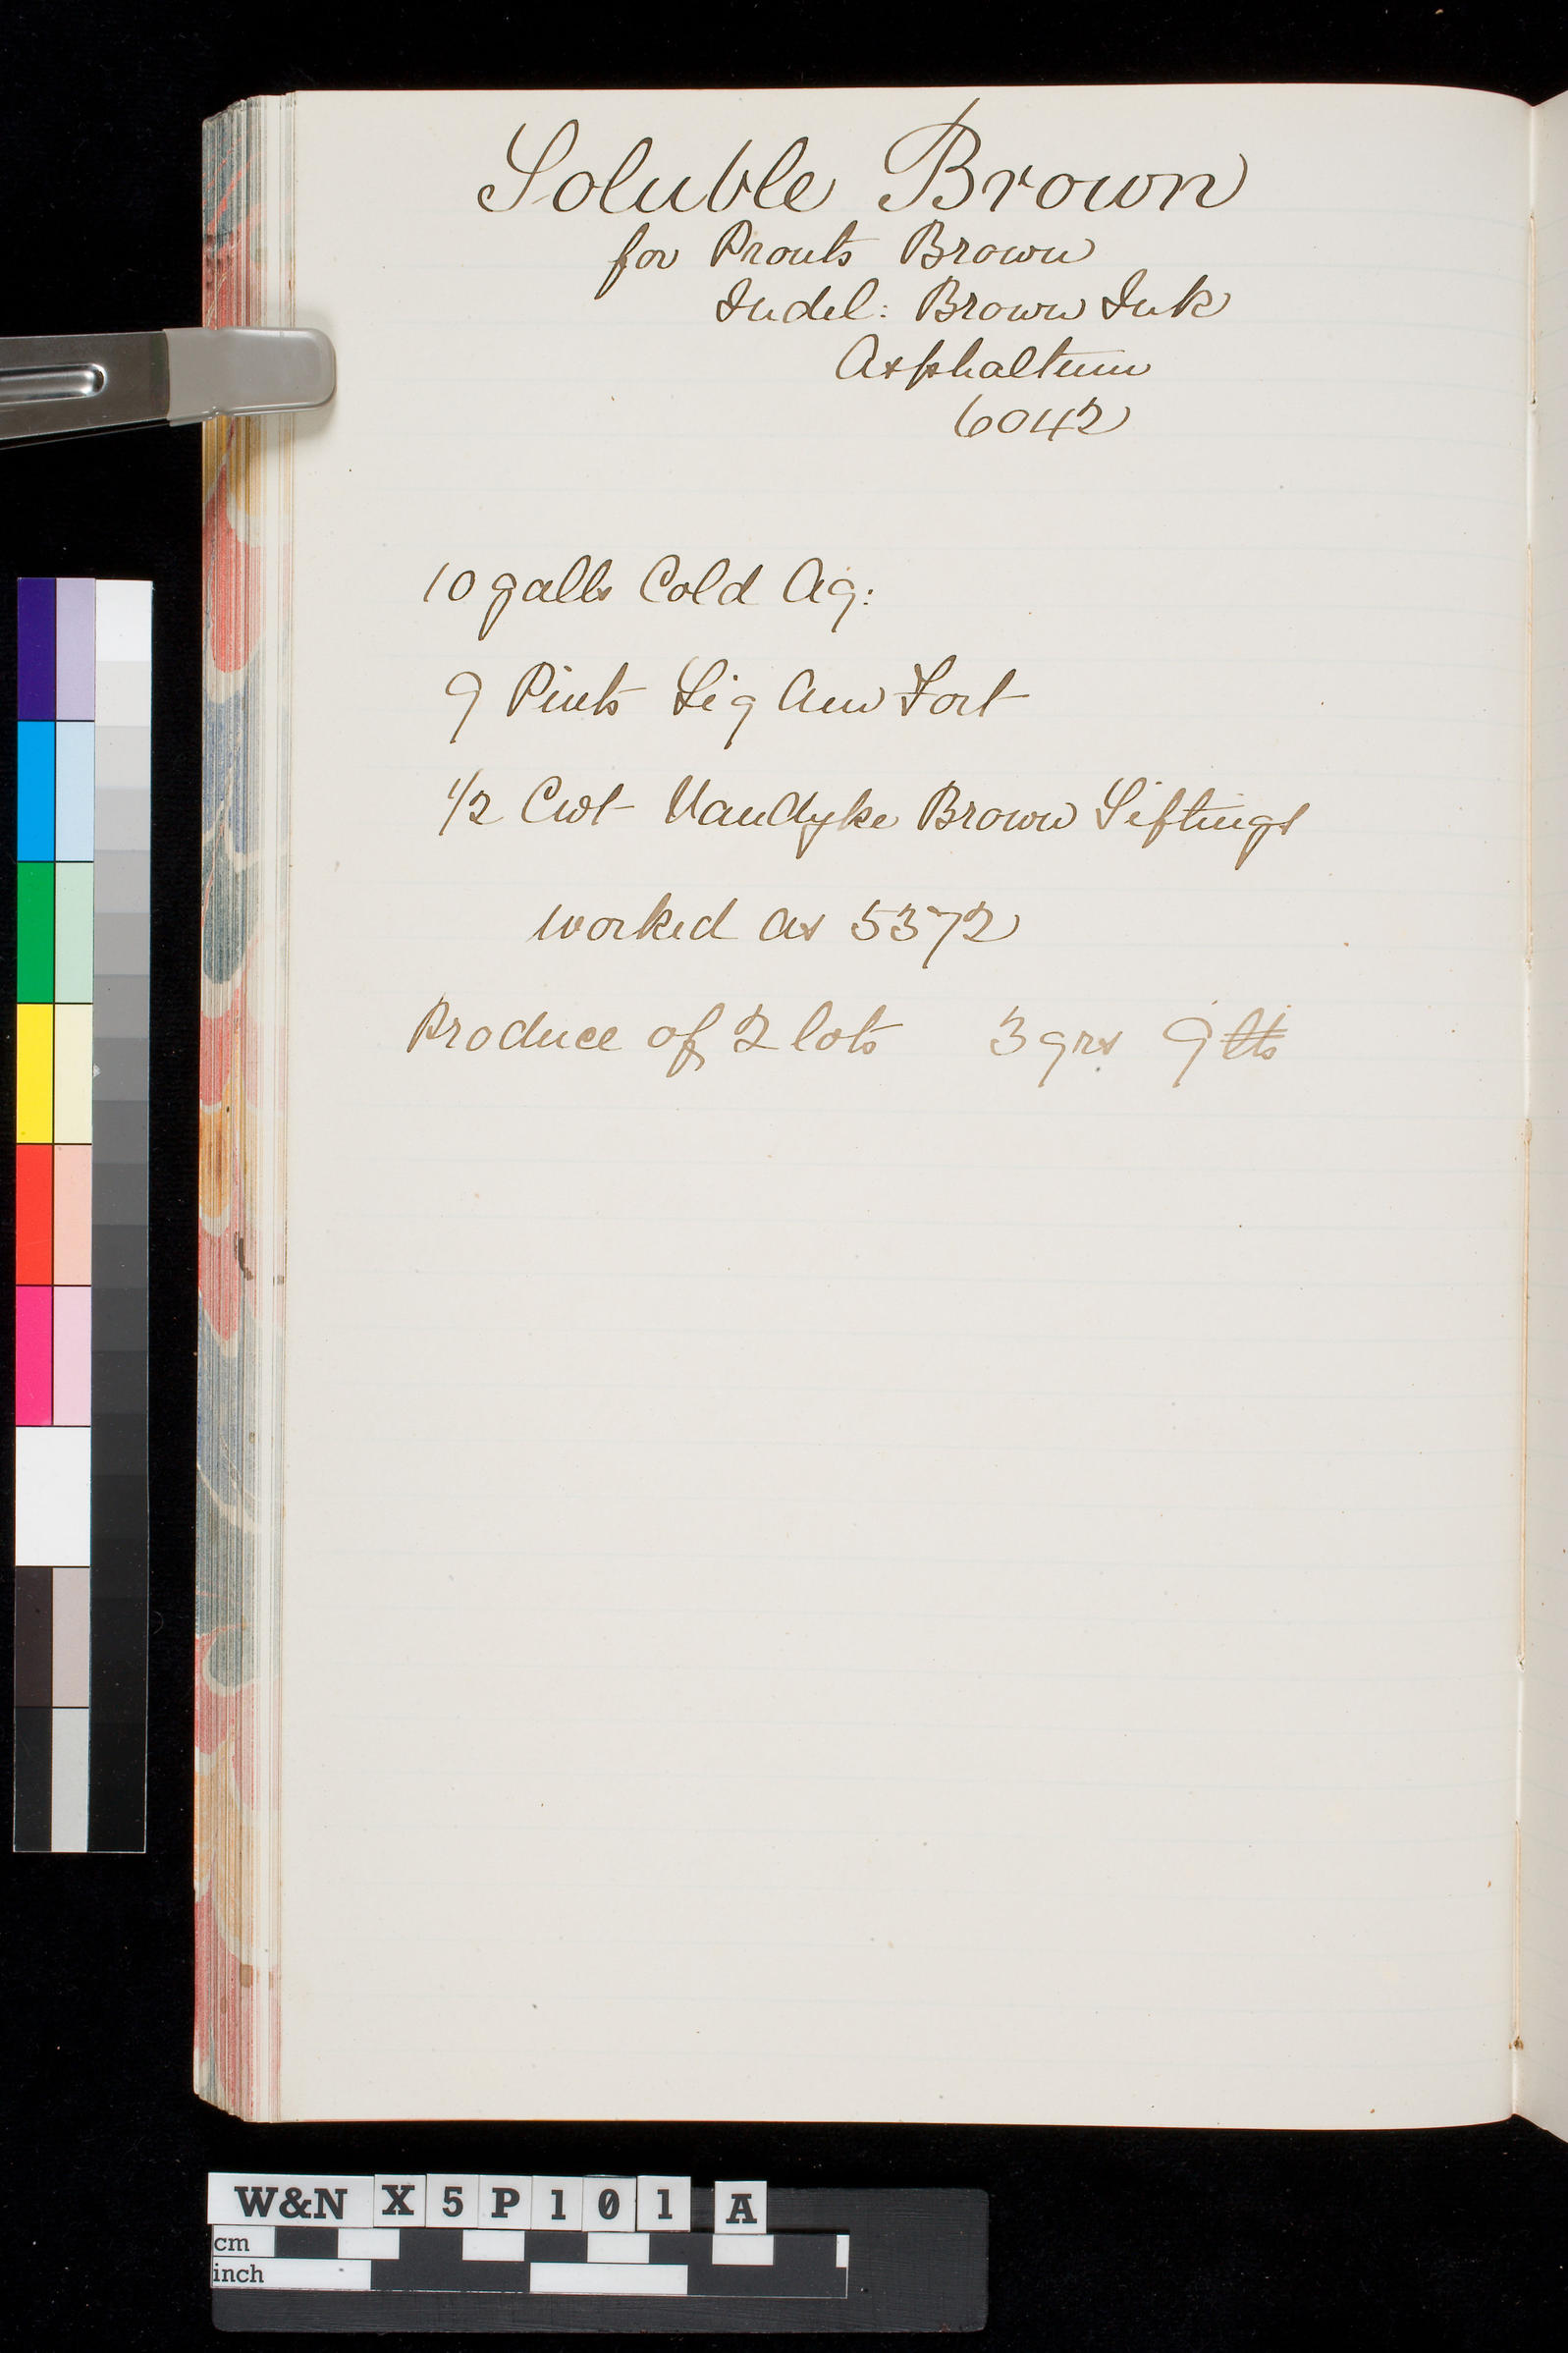 Soluble Brown
for Prouts Brown
Indel: Brown Ink
Asphaltum
6042
10 galls Cold Aq:
9 Pints Liq Am Fort
1/2 Cwt Vandyke Brown Siftings
worked as 5372
Produce of 2 lots 3 qrs 9 lbs
W&N X5P101 A
cm
inch